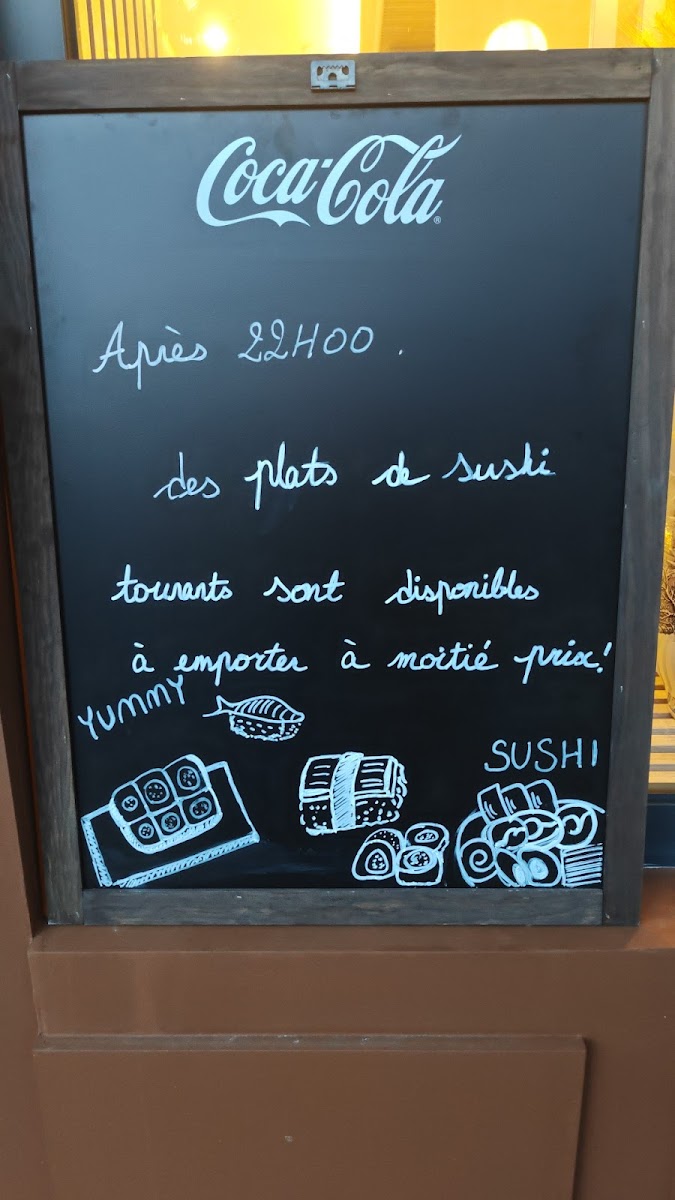 Coca-Cola®
Après 22H00.
des plats de sushi
tournants sont disponibles
à emporter à moitié prix!
YUMMY
SUSHI